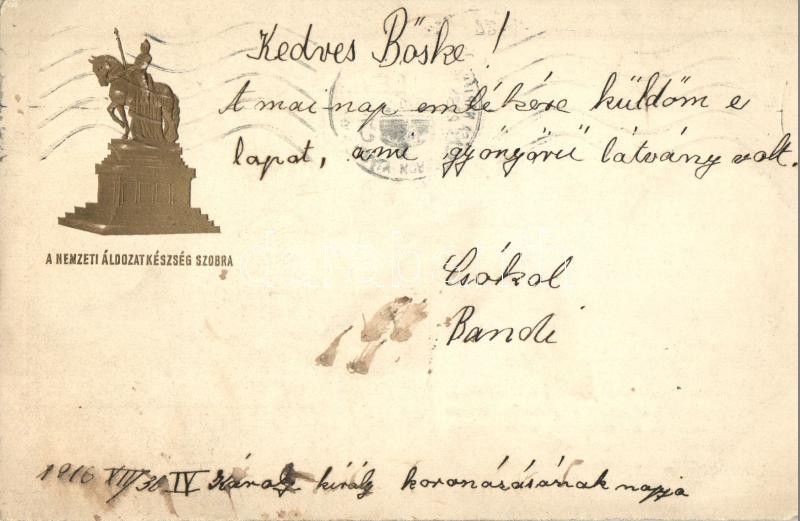 Kedves Böske!
A mai nap emlékére küldöm e
lapot, ami gyönyörü látvány volt.
A NEMZETI ÁLDOZATKÉSZSÉG SZOBRA
Csókol
Bandi
1916 XII/30 IV Károly király koronázásának napja